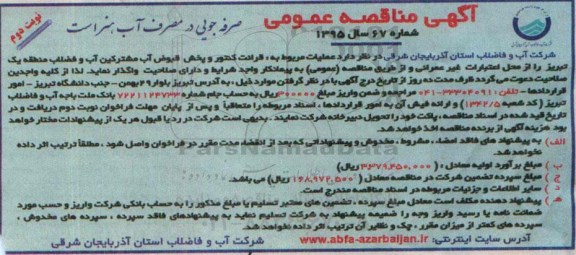 آگهی مناقصه عمومی
شماره ۶۷ سال ۱۳۹۵
صرفه جویی در مصرف آب هنر است
نوبت دوم
شرکت آب و فاضلاب استان آذربایجان شرقی در نظر دارد عملیات مربوط به، قرائت کنتور و پخش قبوض آب مشترکین آب و فاضلاب منطقه یک
تبریز را از محل اعتبارات غیر عمرانی و از طریق مناقصه (عمومی) به پیمانکار واجد شرایط و دارای صلاحیت واگذار نماید. لذا از کلیه واجدین
صلاحیت دعوت می گردد ظرف مدت ده روز از تاریخ درج آگهی با در نظر گرفتن موارد ذیل، به آدرس تبریز بلوار ۲۹ بهمن – جنب دانشگاه تبریز – امور
قراردادها – تلفن ۳۳۳۰۴۰۹۱۱-۰۴۱ مراجعه و ضمن واریز مبلغ ۳۰۰۰۰۰ ریال به حساب جام شماره ۷۲۲۱۱۲۴۷۳۳ بانک ملت باجه آب و فاضلاب
تبریز (کد شعبه ۱۳۴۲/۵) و ارائه فیش آن به امور قراردادها، اسناد مربوطه را متعاقباً و پس از پایان مهلت فراخوان نوبت دوم دریافت و در
تاریخ قید شده در اسناد مناقصه، پاکت خود را تحویل دبیرخانه شرکت نمایند. بدیهی است شرکت در رد یا قبول هر یک از پیشنهادات مختار خواهد
بود هزینه آگهی از برنده مناقصه اخذ خواهد شد.
الف) به پیشنهاد های فاقد امضاء، مشروط، مخدوش و پیشنهاداتی که بعد از انقضاء مدت مقرر در فراخوان واصل شود، مطلقاً ترتیب اثر داده
نخواهد شد.
ب) مبلغ برآورد اولیه معادل: (۳۳۷۹،۴۵۰،۰۰۰ ریال)
ج) مبلغ سپرده تضمین شرکت در مناقصه معادل (۱۶۸،۹۷۲،۵۰۰ ریال) می باشد.
د) سایر اطلاعات و جزئیات مربوطه در اسناد مناقصه مندرج است.
هـ) پیشنهاد دهنده مکلف است معادل مبلغ سپرده، تضمین های معتبر تسلیم یا مبلغ مذکور را به حساب بانکی شرکت واریز و حسب مورد
ضمانت نامه یا رسید واریز وجه را ضمیمه پیشنهاد به شرکت تسلیم نماید به پیشنهادهای فاقد سپرده، سپرده های مخدوش،
سپرده های کمتر از میزان مقرر، چک و نظایر آن ترتیب اثر داده نخواهد شد.
آدرس سایت اینترنتی: www.abfa-azarbaijan.ir
شرکت آب و فاضلاب استان آذربایجان شرقی